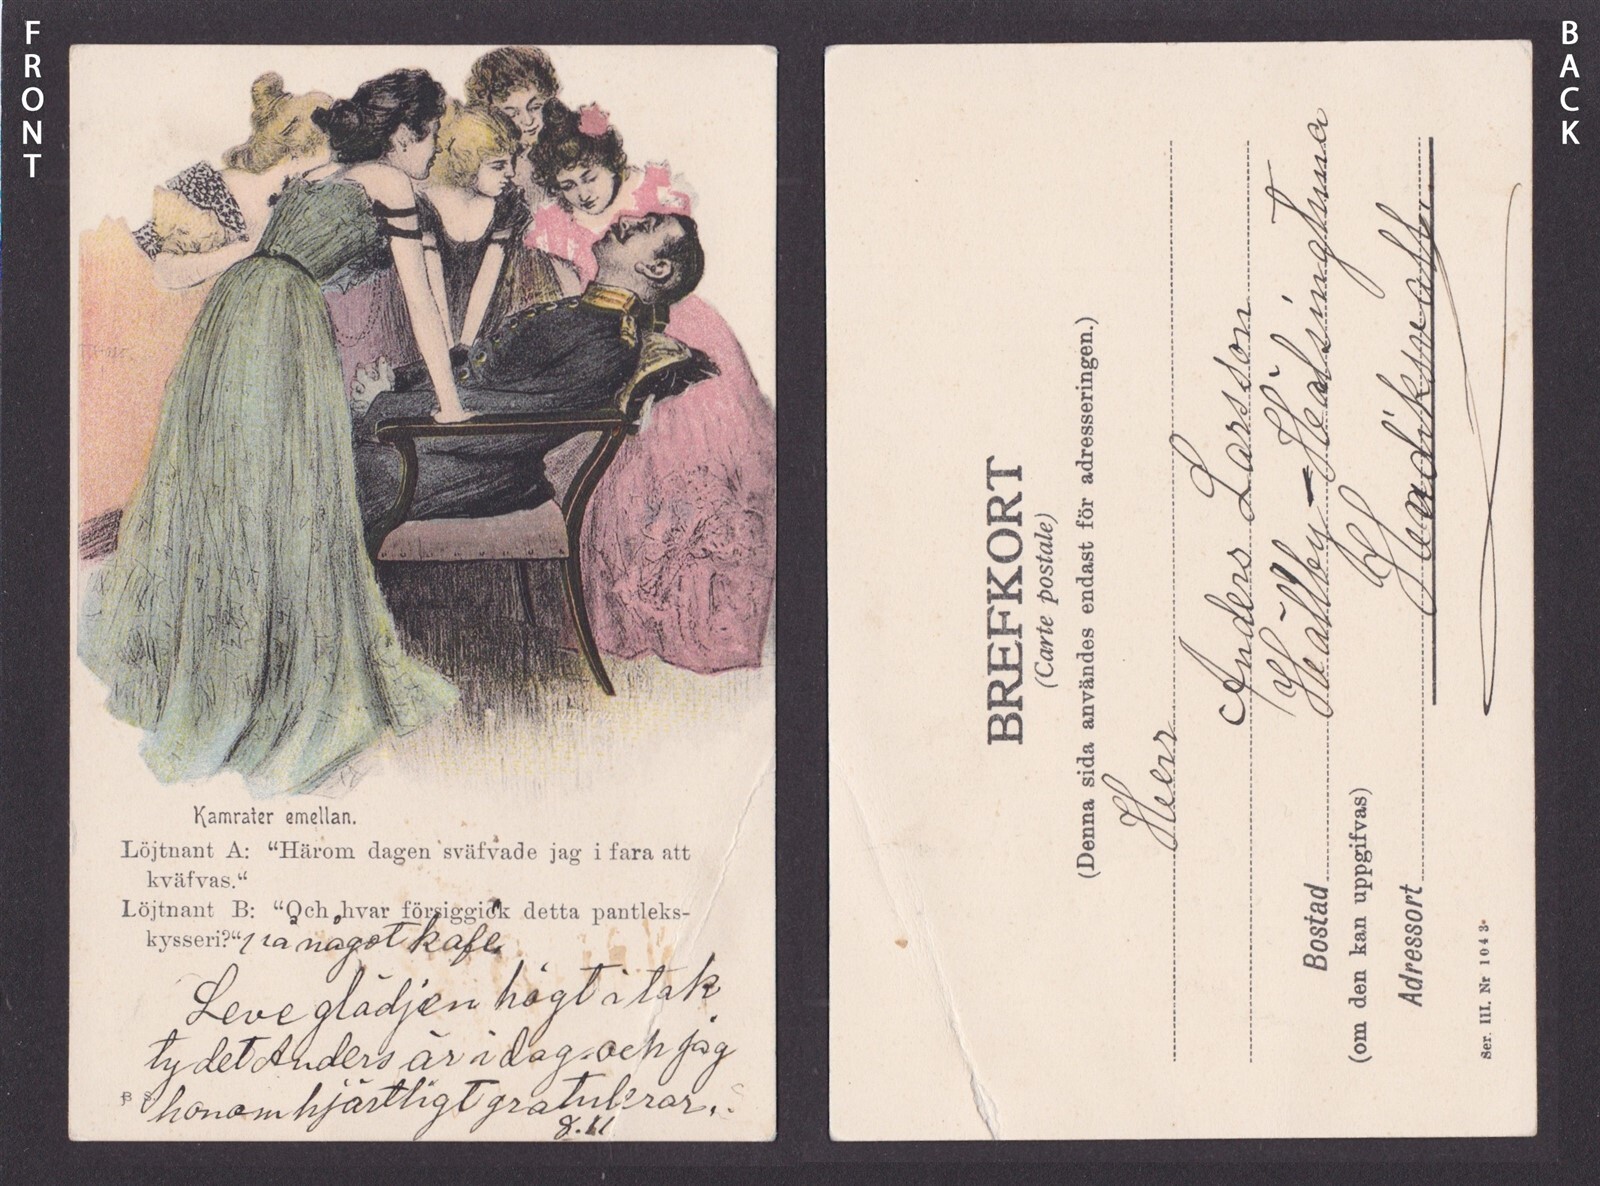 FRONT
Kamrater emellan.
Löjtnant A: "Härom dagen sväfvade jag i fara att
kväfvas."
Löjtnant B: "Och hvar försiggick detta pantleks-
kysseri?" något kafe
Leve glädjen högt i tak
ty det Anders är i dag och jag
honom hjärtligt gratulerar.
8.11
BACK
BREFKORT
(Carte postale)
(Denna sida användes endast för adresseringen.)
Herr
Anders Larsson
Hällby-Hälsingtuna
Bostad
(om den kan uppgifvas)
Hudiksvall
Adressort
Ser. III. Nr 1043.